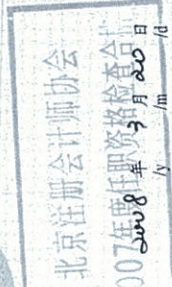 北京注册会计师协会
007年度任职资格检查合
2008年 3月 20日
/y /m /d